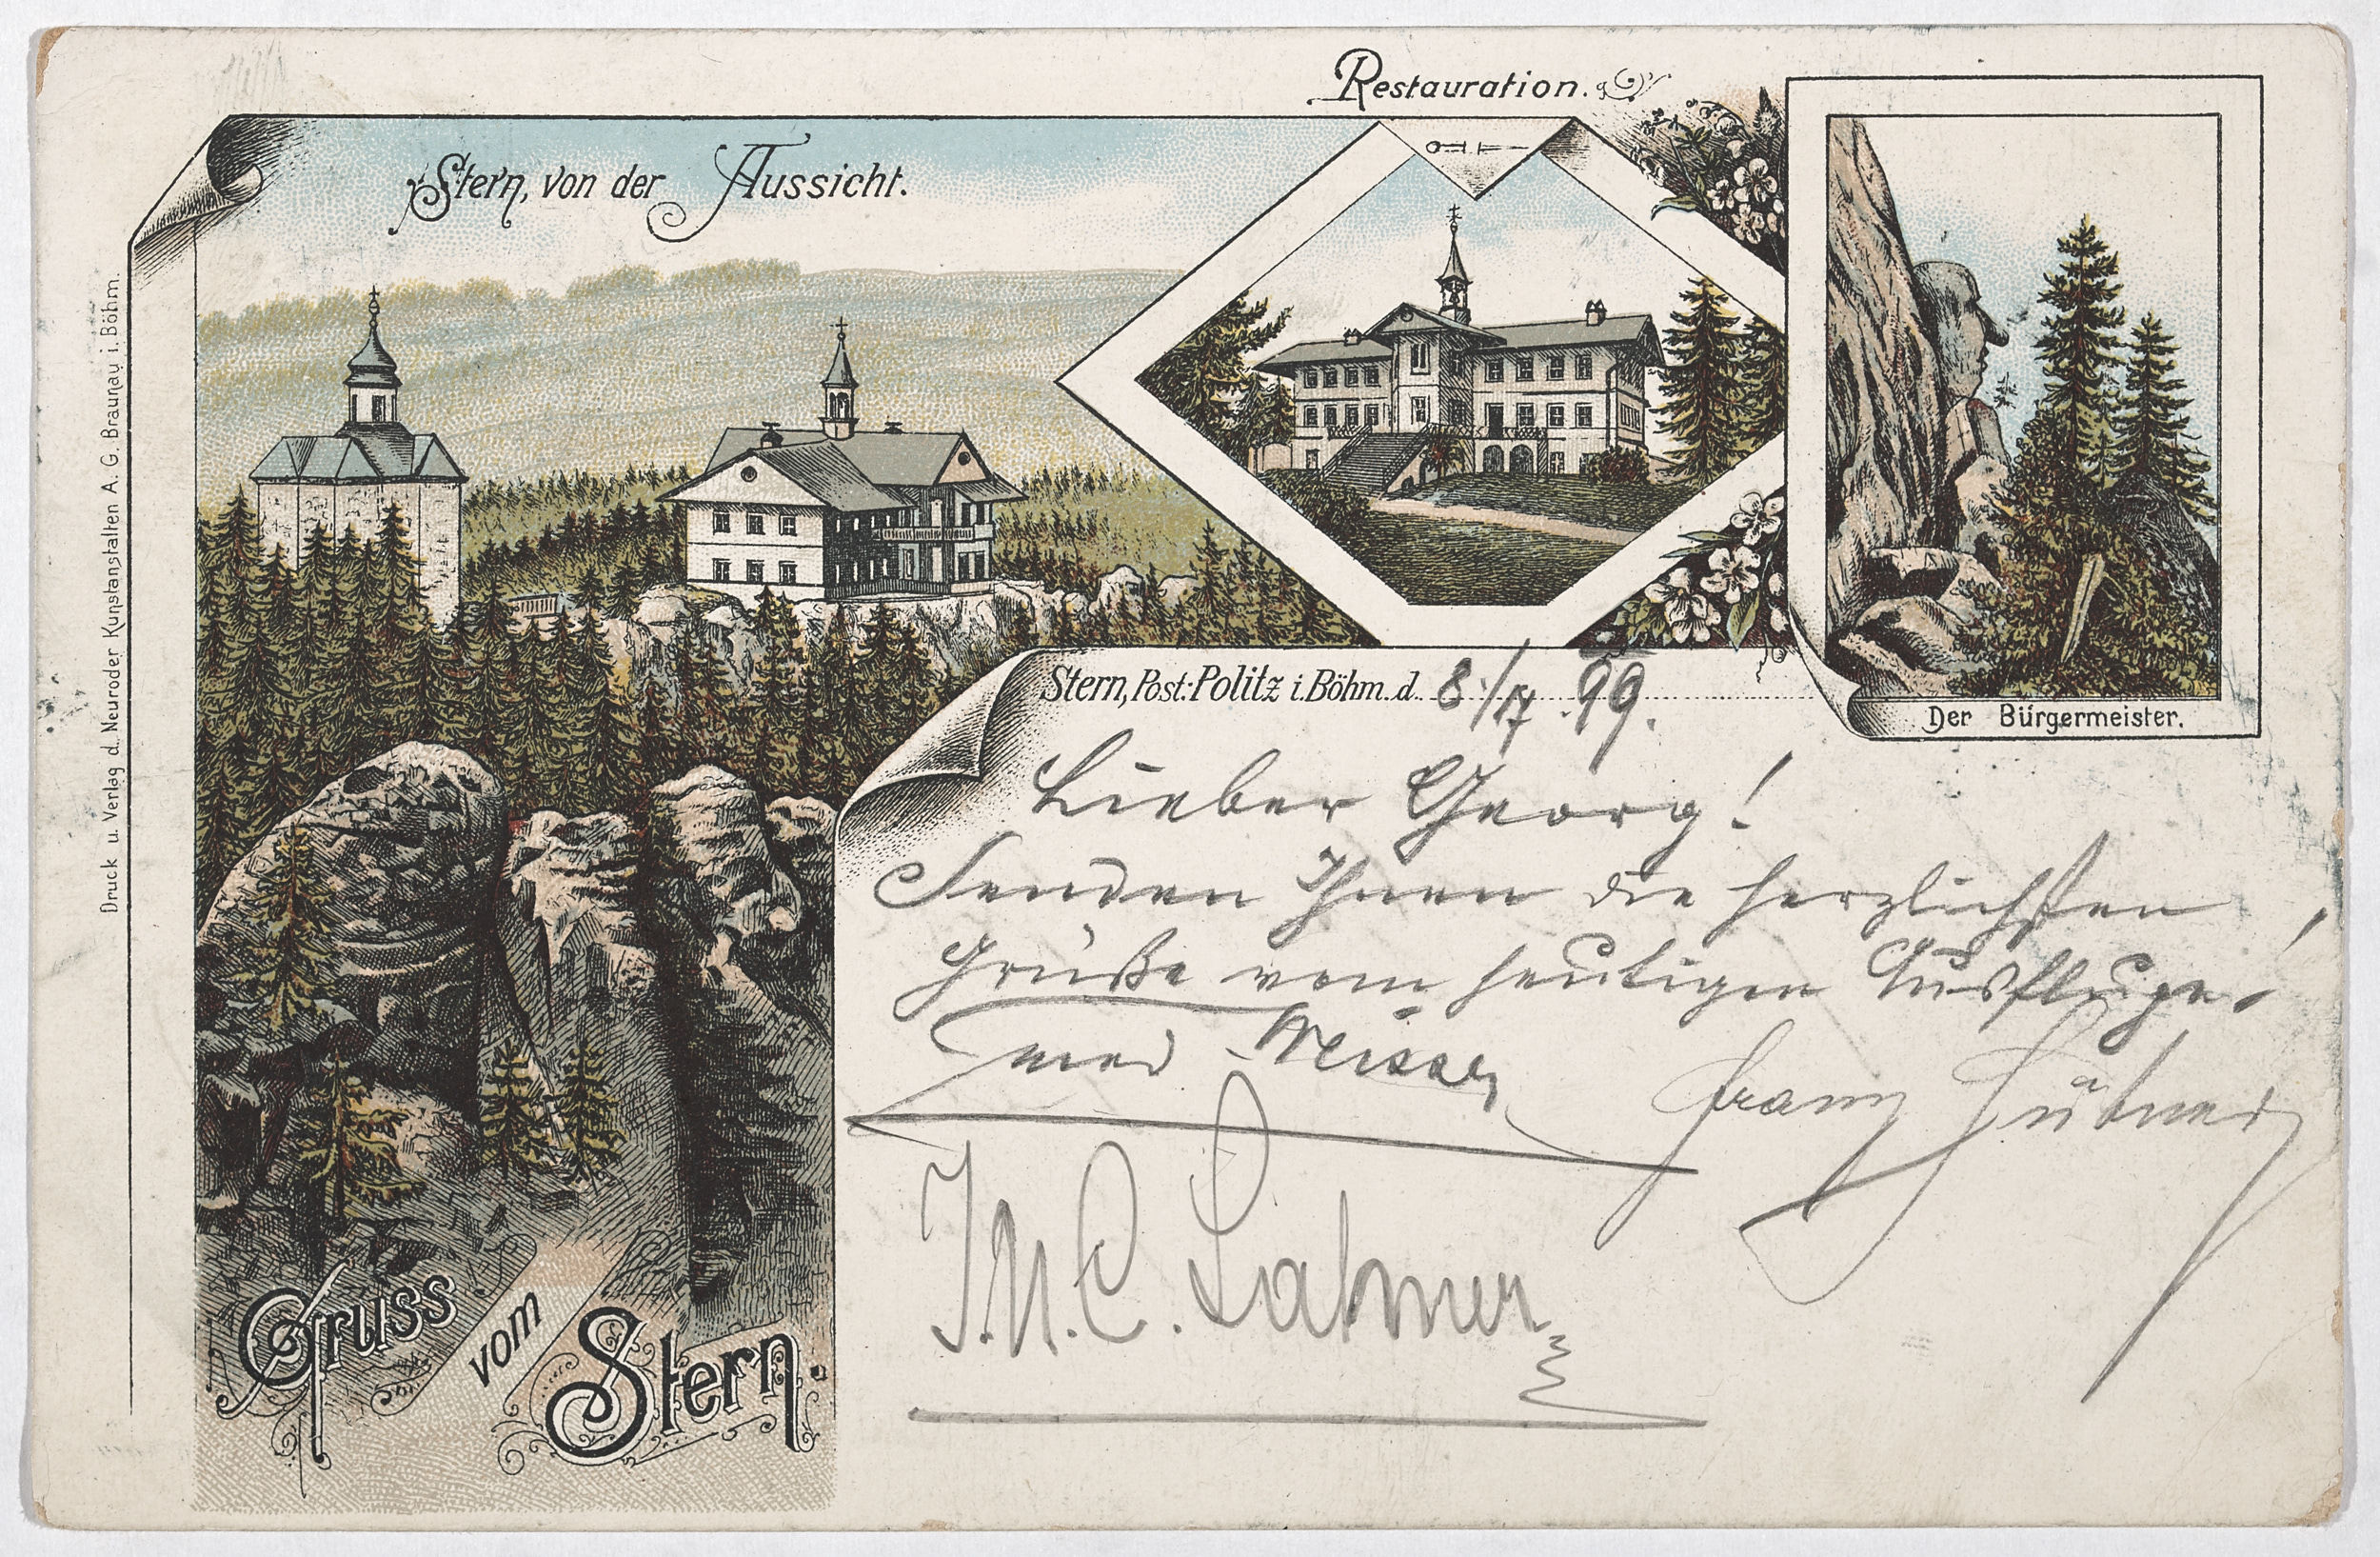 Restauration.
Stern, von der Aussicht.
Stern, Post: Politz i. Böhm. d. 8./17. 99.
Der Bürgermeister.
Lieber Georg!
Senden Ihnen die herzlichsten
Grüße vom heutigen Ausfluge!
Franz Hübner
Gruss
vom
Stern.
Druck u. Verlag d. Neuroder Kunstanstalten A. G. Braunau i. Böhm.